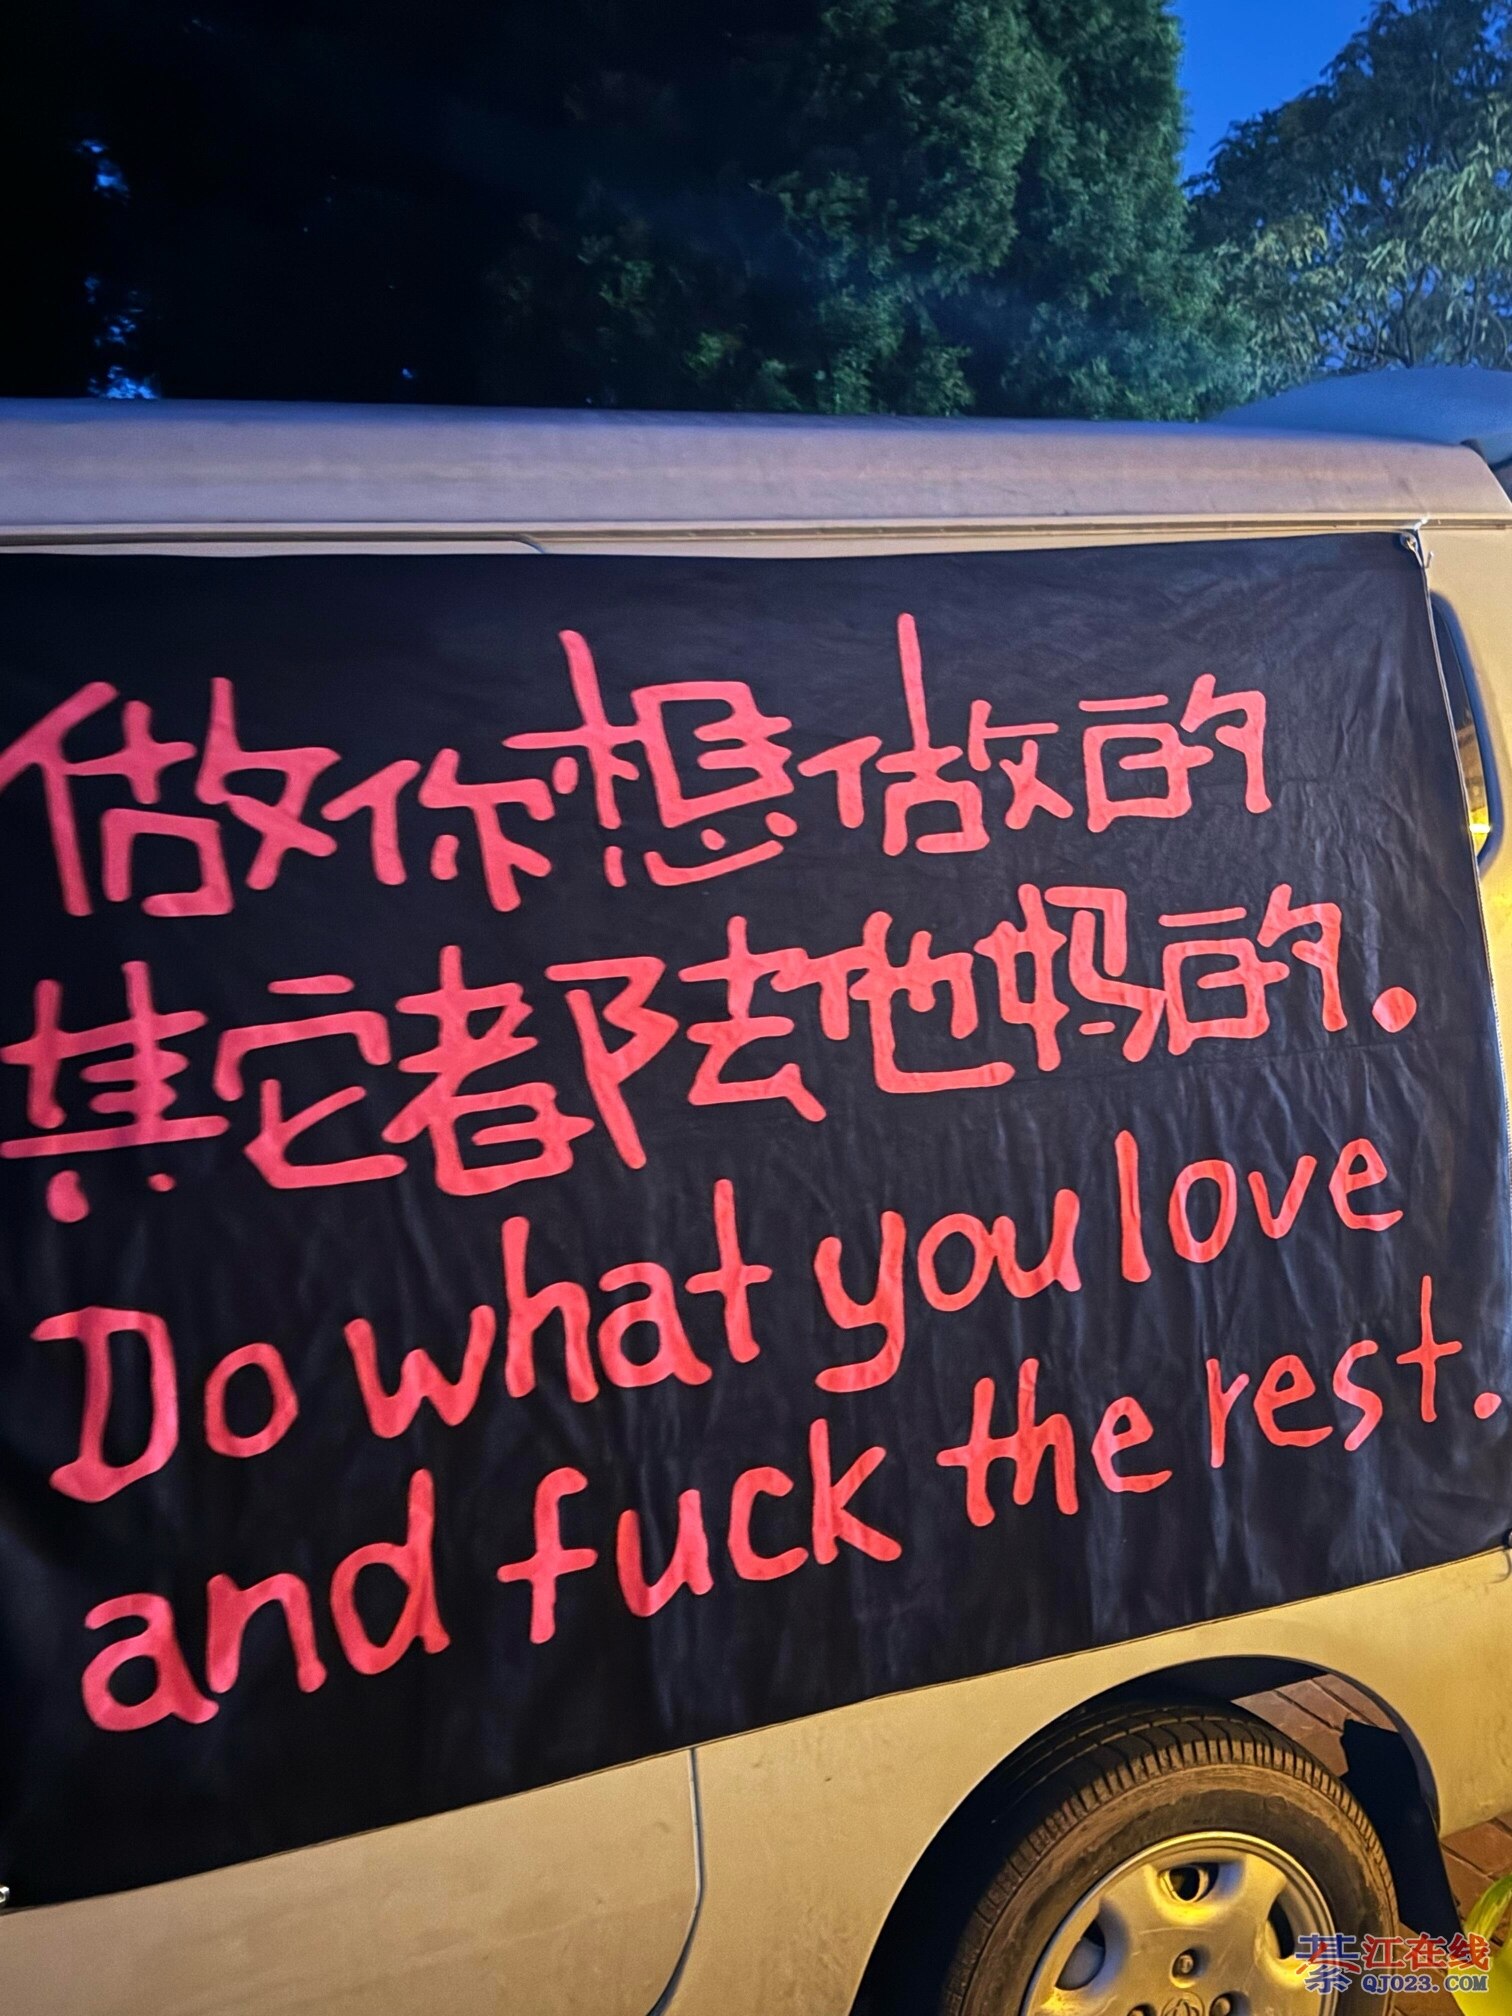 做你想做的
其它都去他妈的.
Do what you love
and fuck the rest.
綦江在线
QJ023.COM